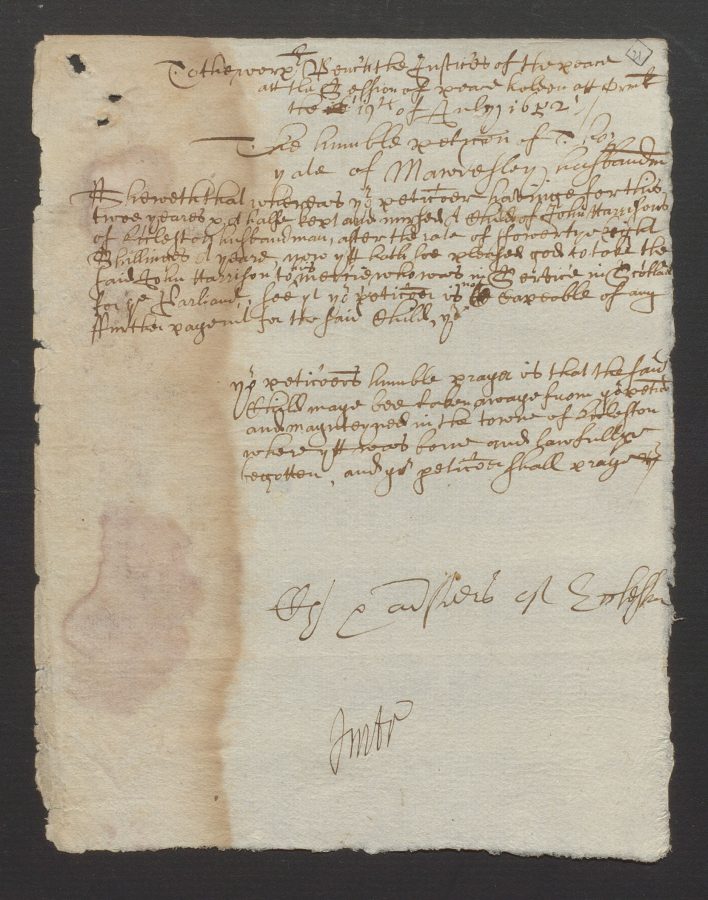 21
To the worp:ll Bench the Justices of the peace
att the Session of peace holden att
the 19th of July 1652
The humble peticon of Tho:
yate of Mawdesley husbandm
Sheweth that whereas yor peticoner havinge for this
twoe yeares & a halfe kept and nursed A Child of John Harrisons
of Eccleston husbandman, after the rate of ffowerty eight
Shillinges A yeare, now ytt hath soe pleased god to take the
said John Harrison to his mercie who was in Service in Scotland
for ye Parliamt, soe yt yor peticoner is not capeable of any
ffurther paymt for the said Child,
yor peticoners humble prayer is that the said
Child maye bee taken awaye from yor peticr
and maynteyned in the towne of Eccleston
where ytt was borne and lawfullye
begotten, and yor peticoner shall praye &
Eccleston